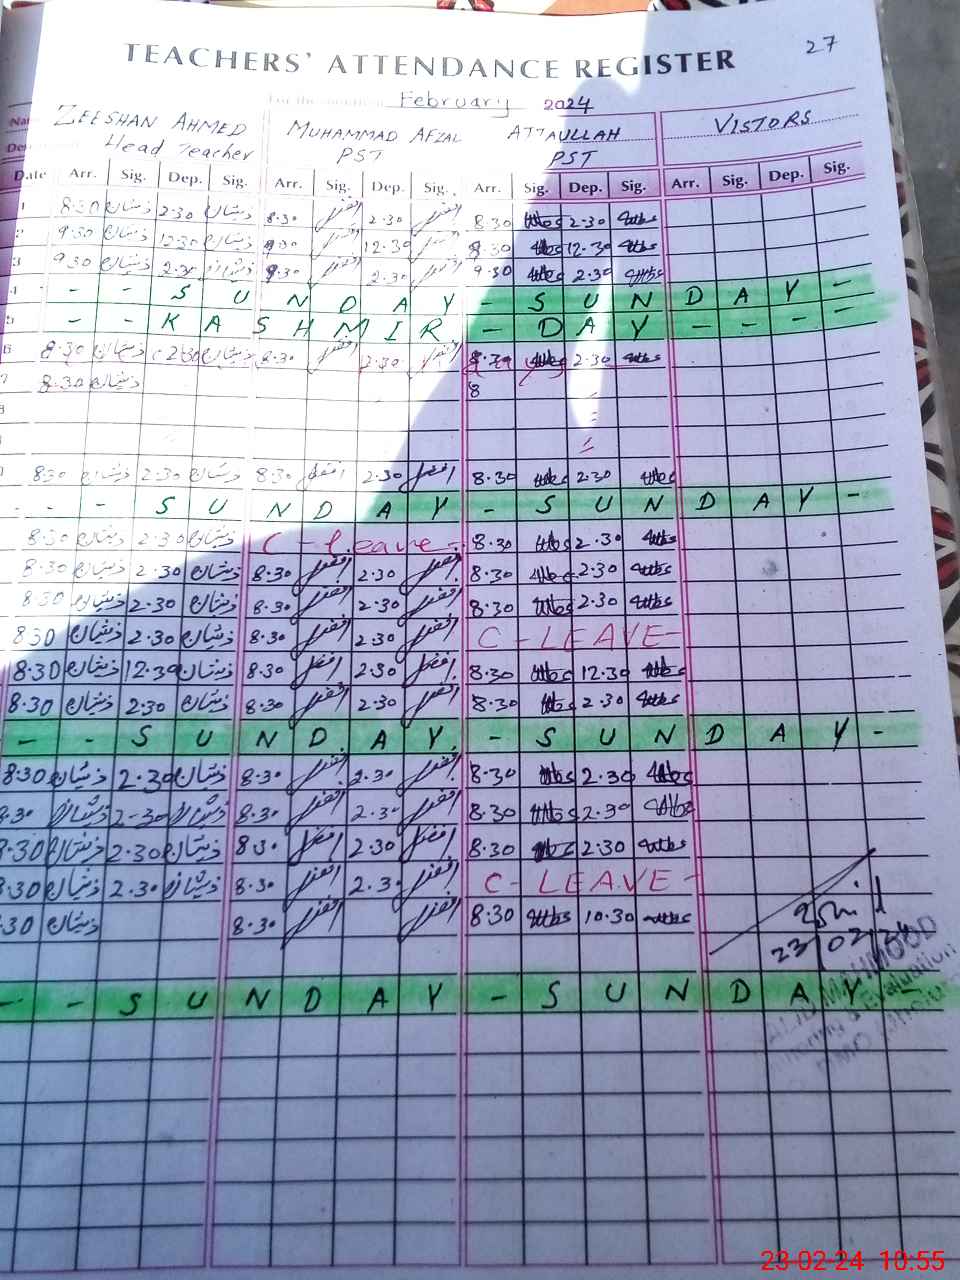 27
TEACHERS' ATTENDANCE REGISTER
February 2024
ZEESHAN AHMED MUHAMMAD AFZAL ATTAULLAH VISTORS
Head Teacher PST PST
Date Arr. Sig. Dep. Sig. Arr. Sig. Dep. Sig. Arr. Sig. Dep. Sig. Arr. Sig. Dep. Sig.
1 8.30 ذیشان 2.30 ذیشان 8.30 افضل 2.30 افضل 8.30 2.30
2 9.30 ذیشان 12.30 ذیشان 12.30 12.30
3 9.30 ذیشان 2.30 ذیشان 9.30 افضل 2.30 افضل 9.30 2.30
4 - - S U N D A Y - S U N D A Y -
5 - - K A S H M I R - D A Y - - - -
6 8.30 ذیشان 2.30 ذیشان 8.30 افضل 2.30 افضل 2.30
7 8.30 ذیشان 8
8
8.30 ذیشان 2.30 ذیشان 8.30 افضل 2.30 افضل 8.30 2.30
- - - S U N D A Y - S U N D A Y -
8.30 ذیشان 2.30 ذیشان C - Leave - 8.30 2.30
8.30 ذیشان 2.30 ذیشان 8.30 افضل 2.30 افضل 8.30 2.30
8.30 ذیشان 2.30 ذیشان 8.30 افضل 2.30 افضل 8.30 2.30
8.30 ذیشان 2.30 ذیشان 8.30 افضل 2.30 افضل C - LEAVE -
8.30 ذیشان 12.30 ذیشان 8.30 افضل 2.30 افضل 8.30 12.30
8.30 ذیشان 2.30 ذیشان 8.30 افضل 2.30 افضل 8.30 2.30
- - S U N D A Y - S U N D A Y -
8.30 ذیشان 2.30 ذیشان 8.30 افضل 2.30 افضل 8.30 2.30
8.30 ذیشان 2-30 ذیشان 8.30 افضل 2.30 افضل 8.30 2.30
8.30 ذیشان 2.30 ذیشان 8.30 افضل 2.30 افضل 8.30 2.30
8.30 ذیشان 2.30 ذیشان 8.30 افضل 2.30 افضل C - LEAVE -
8.30 ذیشان 8.30 افضل افضل 8.30 10.30
23/02/24
- - S U N D A Y - S U N D A Y -
MAHMOOD
Evaluation
23-02-24 10:55